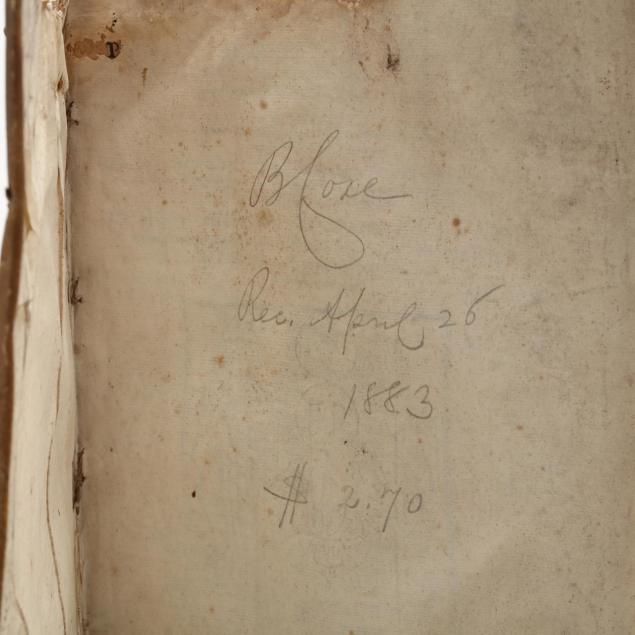 B Coxe
Rec. April 26
1883
$ 2.70